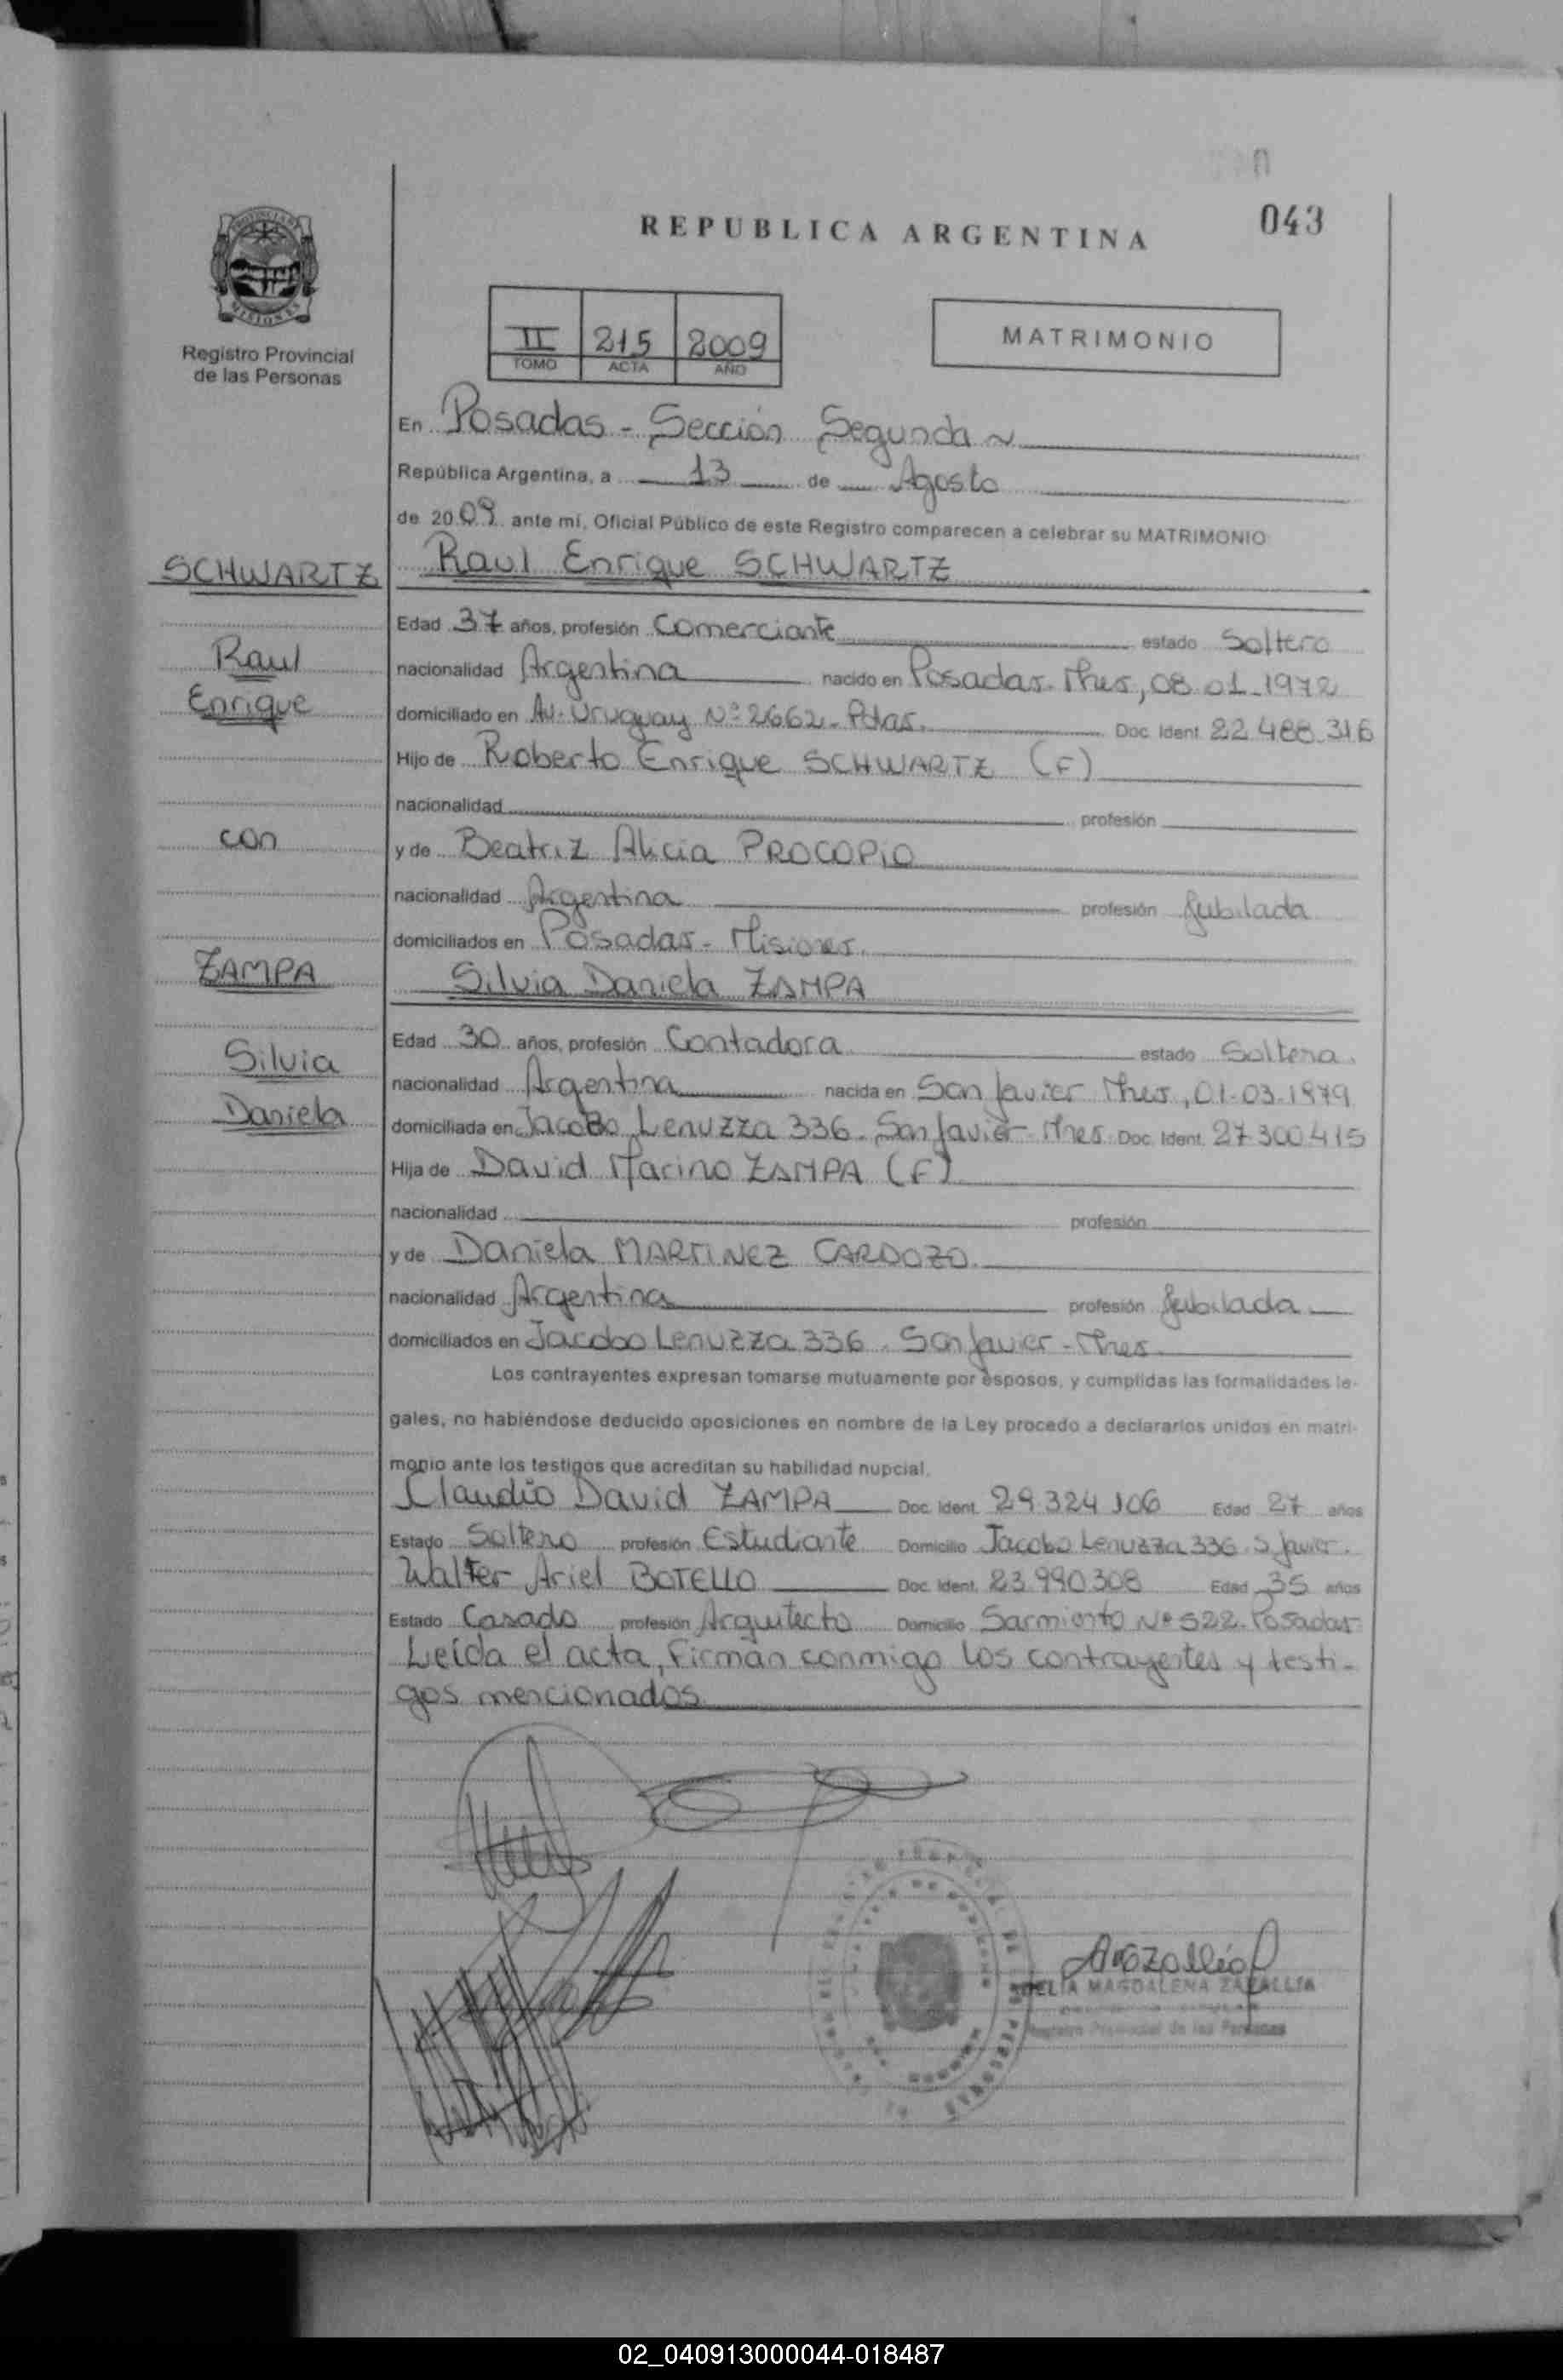 043
REPUBLICA ARGENTINA
PROVINCIA DE
MISIONES
Registro Provincial
de las Personas
II 215 2009
TOMO ACTA AÑO
MATRIMONIO
En Posadas - Sección Segunda ~
República Argentina, a 13 de Agosto
de 2009 ante mí, Oficial Público de este Registro comparecen a celebrar su MATRIMONIO
SCHWARTZ
Raul Enrique SCHWARTZ
Edad 37 años, profesión Comerciante estado Soltero
Raul
nacionalidad Argentina nacido en Posadas. Mnes, 08.01.1972
Enrique
domiciliado en Av. Uruguay Nº 2662 - Pdas. Doc. Ident. 22.488.316
Hijo de Roberto Enrique SCHWARTZ (F)
nacionalidad profesión
con
y de Beatriz Alicia PROCOPIO
nacionalidad Argentina profesión Jubilada
domiciliados en Posadas - Misiones.
ZAMPA
Silvia Daniela ZAMPA
Edad 30 años, profesión Contadora estado Soltera.
Silvia
nacionalidad Argentina nacida en San Javier Mnes, 01-03-1979
Daniela
domiciliada en Jacobo Lenuzza 336 - San Javier - Mnes Doc. Ident. 27300415
Hija de David Marino ZAMPA (F)
nacionalidad profesión
y de Daniela MARTINEZ CARDOZO.
nacionalidad Argentina profesión Jubilada
domiciliados en Jacobo Lenuzza 336. San Javier - Mnes
Los contrayentes expresan tomarse mutuamente por esposos, y cumplidas las formalidades le-
gales, no habiéndose deducido oposiciones en nombre de la Ley procedo a declararlos unidos en matri-
monio ante los testigos que acreditan su habilidad nupcial.
Claudio David ZAMPA Doc. Ident. 29.324.106 Edad 27 años
Estado Soltero profesión Estudiante Domicilio Jacobo Lenuzza 336. S. Javier.
Walter Ariel BOTELLO Doc. Ident. 23.990.308 Edad 35 años
Estado Casado profesión Arquitecto Domicilio Sarmiento Nº 522. Posadas
Leída el acta, firman conmigo los contrayentes y testi-
gos mencionados
MAGDALENA ZARALLIA
Registro Provincial de las Personas
02_040913000044-018487